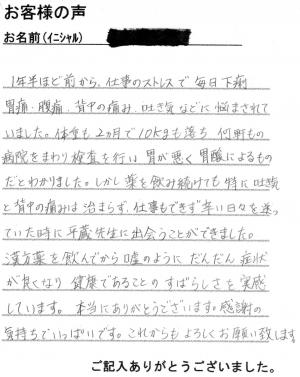 お客様の声
お名前(イニシャル)
1年半ほど前から、仕事のストレスで毎日下痢
胃痛・腹痛、背中の痛み、吐き気などに悩まされて
いました。体重も2ヵ月で10kgも落ち 何軒もの
病院をまわり検査を行い 胃が悪く胃酸によるもの
だとわかりました。しかし薬を飲み続けても特に吐気
と背中の痛みは治まらず、仕事もできず辛い日々を送っ
ていた時に平蔵先生に出会うことができました。
漢方薬を飲んでから嘘のようにだんだん症状
が良くなり 健康であることのすばらしさを実感
しています。本当にありがとうございます。感謝の
気持ちでいっぱいです。これからもよろしくお願い致します
ご記入ありがとうございました。